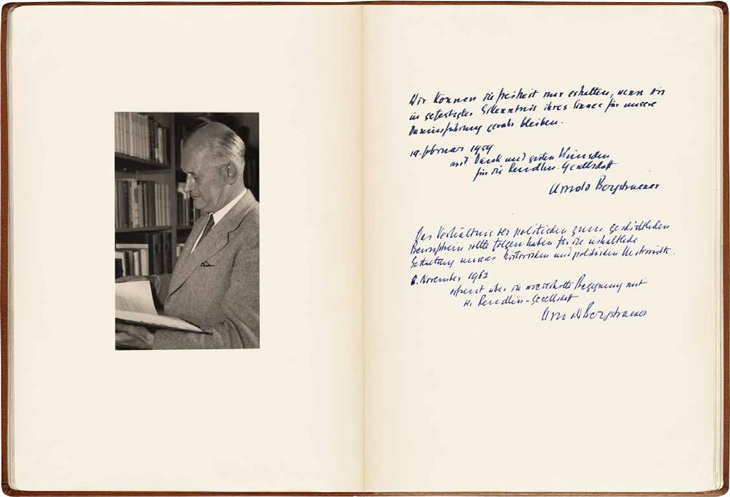 Wir können die Freiheit nur erhalten, wenn wir
in gefestigter Erkenntnis ihres Sinnes für unsere
Daseinsführung gerade bleiben.
19. Februar 1959
mit Dank und guten Wünschen
für die Rendtin-Gesellschaft
Arnold Bergstraesser
Das Verhältnis des politischen zum geschichtlichen
Bewusstsein sollte Folgen haben für die inhaltliche
Gestaltung unseres historischen und politischen Unterrichts.
6. November 1963
erfreut über die wiederholte Begegnung mit
der -Gesellschaft
Arnold Bergstraesser